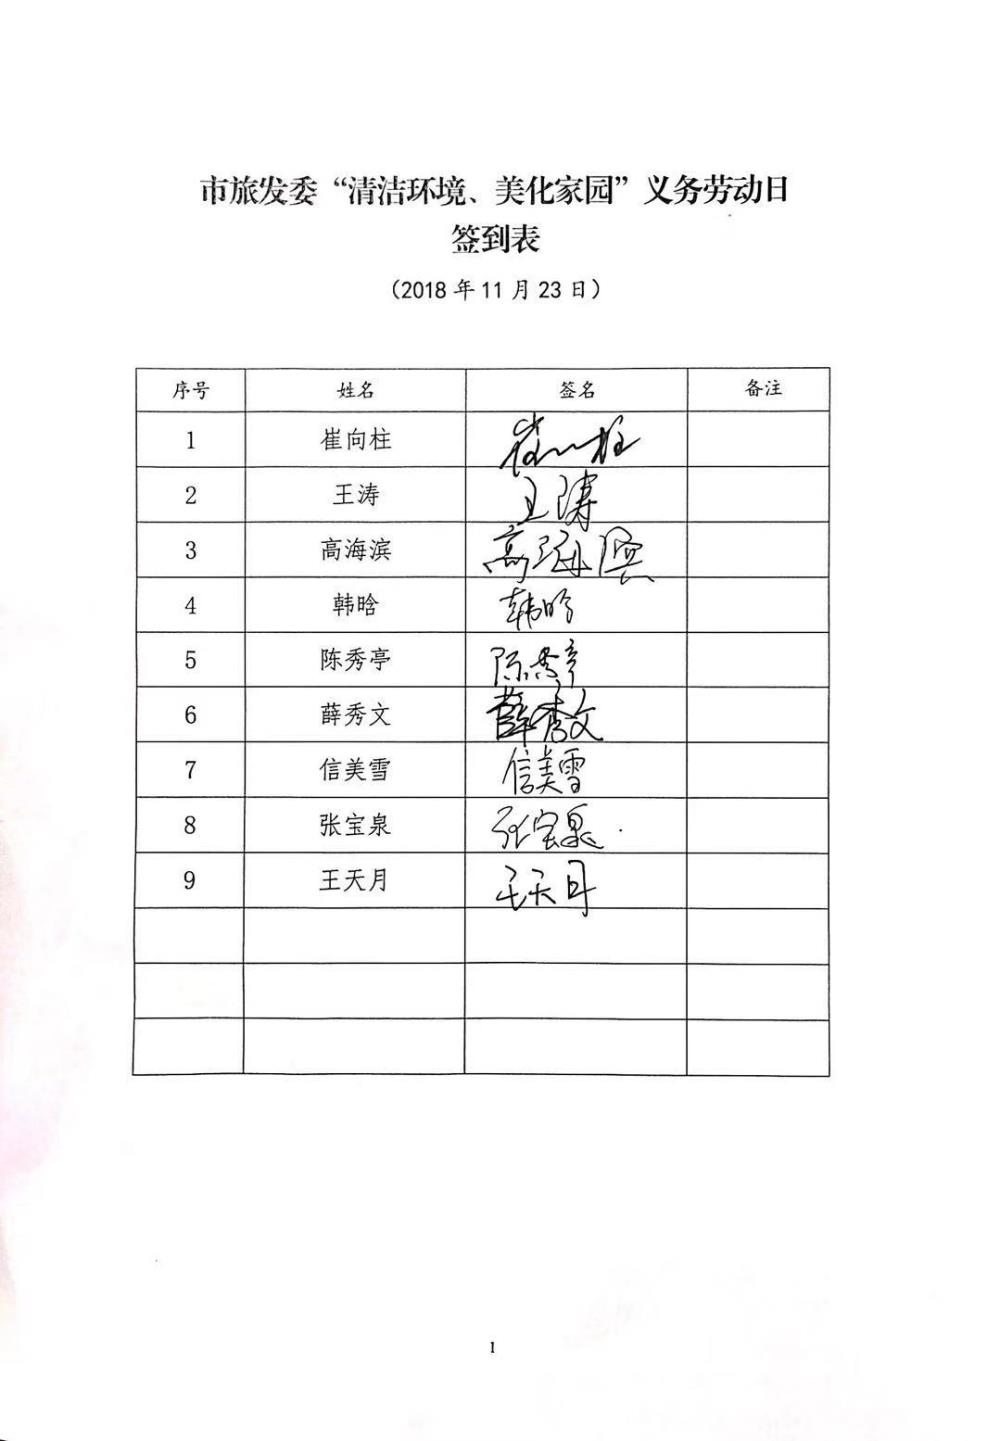 市旅发委“清洁环境、美化家园”义务劳动日
签到表
（2018 年 11 月 23 日）
序号 姓名 签名 备注
1 崔向柱 崔向柱
2 王涛 王涛
3 高海滨 高海滨
4 韩晗 韩晗
5 陈秀亭 陈秀亭
6 薛秀文 薛秀文
7 信美雪 信美雪
8 张宝泉 张宝泉
9 王天月 王天月
1